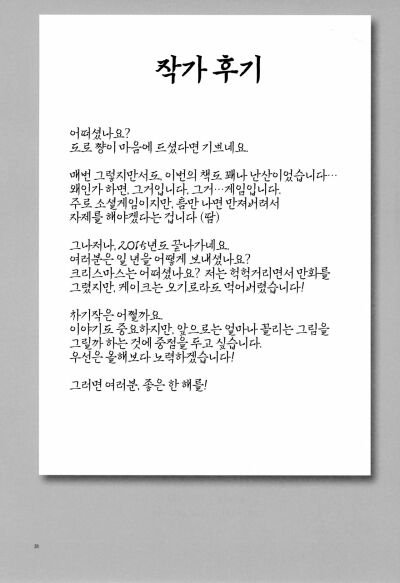 작가 후기
어떠셨나요?
도로 쨩이 마음에 드셨다면 기쁘네요.
매번 그렇지만서도, 이번의 책도 꽤나 난산이었습니다…
왜인가 하면, 그거입니다, 그거…게임입니다.
주로 소셜게임이지만, 틈만 나면 만져버려서
자제를 해야겠다는 겁니다 (땀)
그나저나, 2015년도 끝나가네요.
여러분은 일 년을 어떻게 보내셨나요?
크리스마스는 어떠셨나요? 저는 헉헉거리면서 만화를
그렸지만, 케이크는 오기로라도 먹어버렸습니다!
차기작은 어쩔까요.
이야기도 중요하지만, 앞으로는 얼마나 꼴리는 그림을
그릴까 하는 것에 중점을 두고 싶습니다.
우선은 올해보다 노력하겠습니다!
그러면 여러분, 좋은 한 해를!